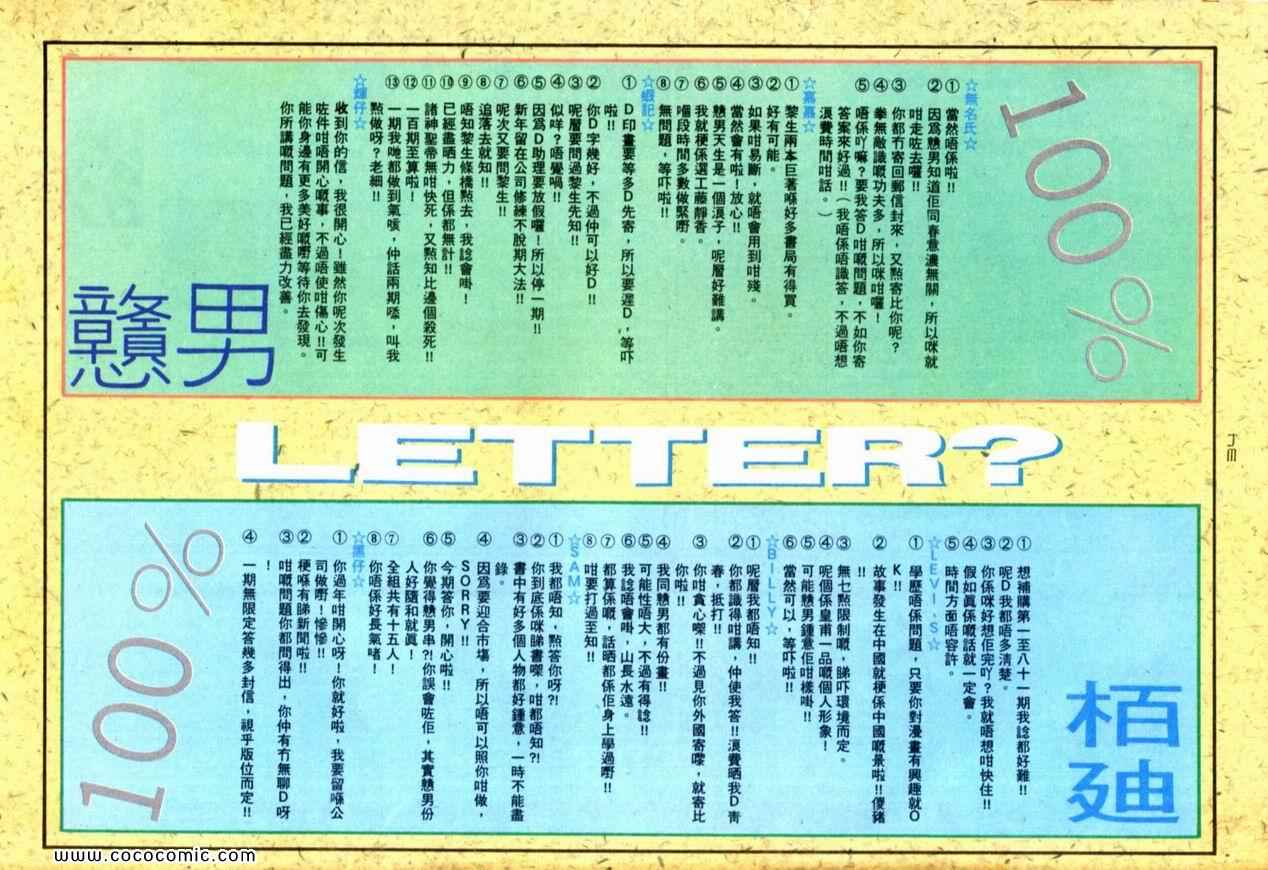 100%
☆無名氏☆
① 當然唔係啦!!
② 因為戇男知道佢同春意濃無關，所以咪就
咁走咗去囉!!
③ 你都冇寄回郵信封來，又點寄比你呢?
④ 拳無敵識嘅功夫多，所以咪咁囉!
⑤ 唔係吖嘛?要我答D咁嘅問題，不如你寄
答案來好過!!（我唔係唔識答，不過唔想
浪費時間咁話。）
☆嘉嘉☆
① 黎生兩本巨著喺好多書局有得買。
② 好有可能。
③ 如果咁易斷，就唔會用到咁殘。
④ 當然會有啦!放心!!
⑤ 戇男天生是一個浪子，呢層好難講。
⑥ 我就梗係選工藤靜香。
⑦ 嗰段時間多數做緊嘢。
⑧ 無問題，等吓啦!!
☆蝦記☆
① D印畫要等多D先寄，所以要遲D，等吓
啦!!
② 你D字幾好，不過仲可以好D!!
③ 呢層要問過黎生先知!!
④ 似咩?唔覺喎!!
⑤ 因為D助理要放假囉!所以停一期!!
⑥ 新年留在公司修練不脫期大法!!
⑦ 呢次又要問黎生!!
⑧ 追落去就知!!
⑨ 唔知黎生條橋點去，我諗會啩!
⑩ 已經盡晒力，但係都無計!!
⑪ 諸神聖帝無咁快死，又點知比邊個殺死!!
⑫ 一百期至算啦!
⑬ 一期我哋都做到氣咳，仲話兩期㗎，叫我
點做呀?老細!!
☆輝仔☆
收到你的信，我很開心!雖然你呢次發生
咗件咁唔開心嘅事，不過唔使咁傷心!!可
能你身邊有更多美好嘅嘢等待你去發現。
你所講嘅問題，我已經盡力改善。
戇男
LETTER?
JM
栢廸
① 想補購第一至八十一期我諗都好難!!
② 呢D我都唔多清楚。
③ 你係咪好想佢完吖?我就唔想咁快住!!
④ 假如真係嘅話就一定會。
⑤ 時間方面唔容許。
☆LEVI,S☆
① 學歷唔係問題，只要你對漫畫有興趣就O
K!!
② 故事發生在中國就梗係中國嘅景啦!!傻豬
③ 無乜點限制嘅，睇吓環境而定。
④ 呢個係皇甫一品嘅個人形象!
⑤ 可能戇男鍾意佢咁樣啩!!
⑥ 當然可以，等吓啦!!
☆BILLY☆
① 呢層我都唔知!!
② 你都識得咁講，仲使我答!!浪費晒我D青
春，抵打!!
③ 你咁貪心㗎!!不過見你外國寄嚟，就寄比
你啦!!
④ 我同戇男都有份畫!!
⑤ 可能性唔大，不過有得諗!!
⑥ 我諗唔會啩，山長水遠。
⑦ 都算係嘅，話晒都係佢身上學過嘢!!
⑧ 咁要打過至知!!
☆SAM☆
① 我都唔知，點答你呀?!
② 你到底係咪睇書㗎，咁都唔知?!
③ 書中有好多個人物都好鍾意，一時不能盡
錄。
④ 因為要迎合市場，所以唔可以照你咁做，
SORRY!!
⑤ 今期答你，開心啦!!
⑥ 你覺得戇男串?!你誤會咗佢，其實戇男份
人好隨和就真!
⑦ 全組共有十五人!
⑧ 你唔係好長氣啫!
☆黑仔☆
① 你過年咁開心呀!你就好啦，我要留喺公
司做嘢!慘慘!!
② 梗喺有睇新聞啦!!
③ 咁嘅問題你都問得出，你仲有冇無聊D呀
!
④ 一期無限定答幾多封信，視乎版位而定!!
100%
www.cococomic.com